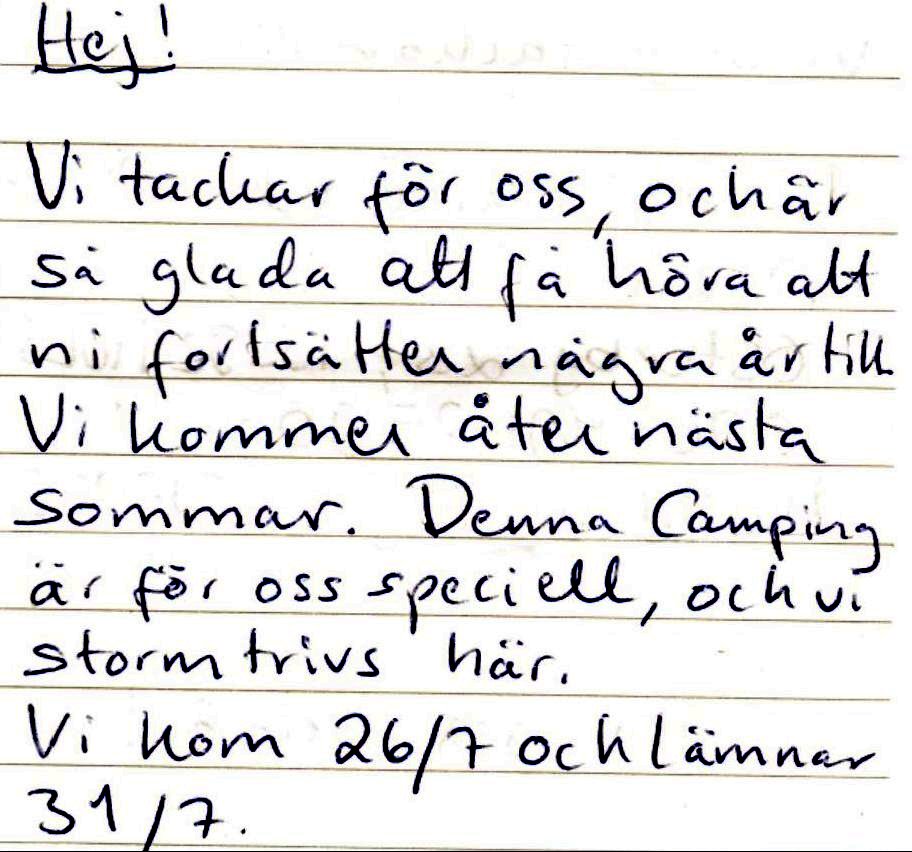 Hej!
Vi tackar för oss, och är
så glada att få höra att
ni fortsätter några år till
Vi kommer åter nästa
sommar. Denna Camping
är för oss speciell, och vi
stormtrivs här.
Vi kom 26/7 och lämnar
31/7.